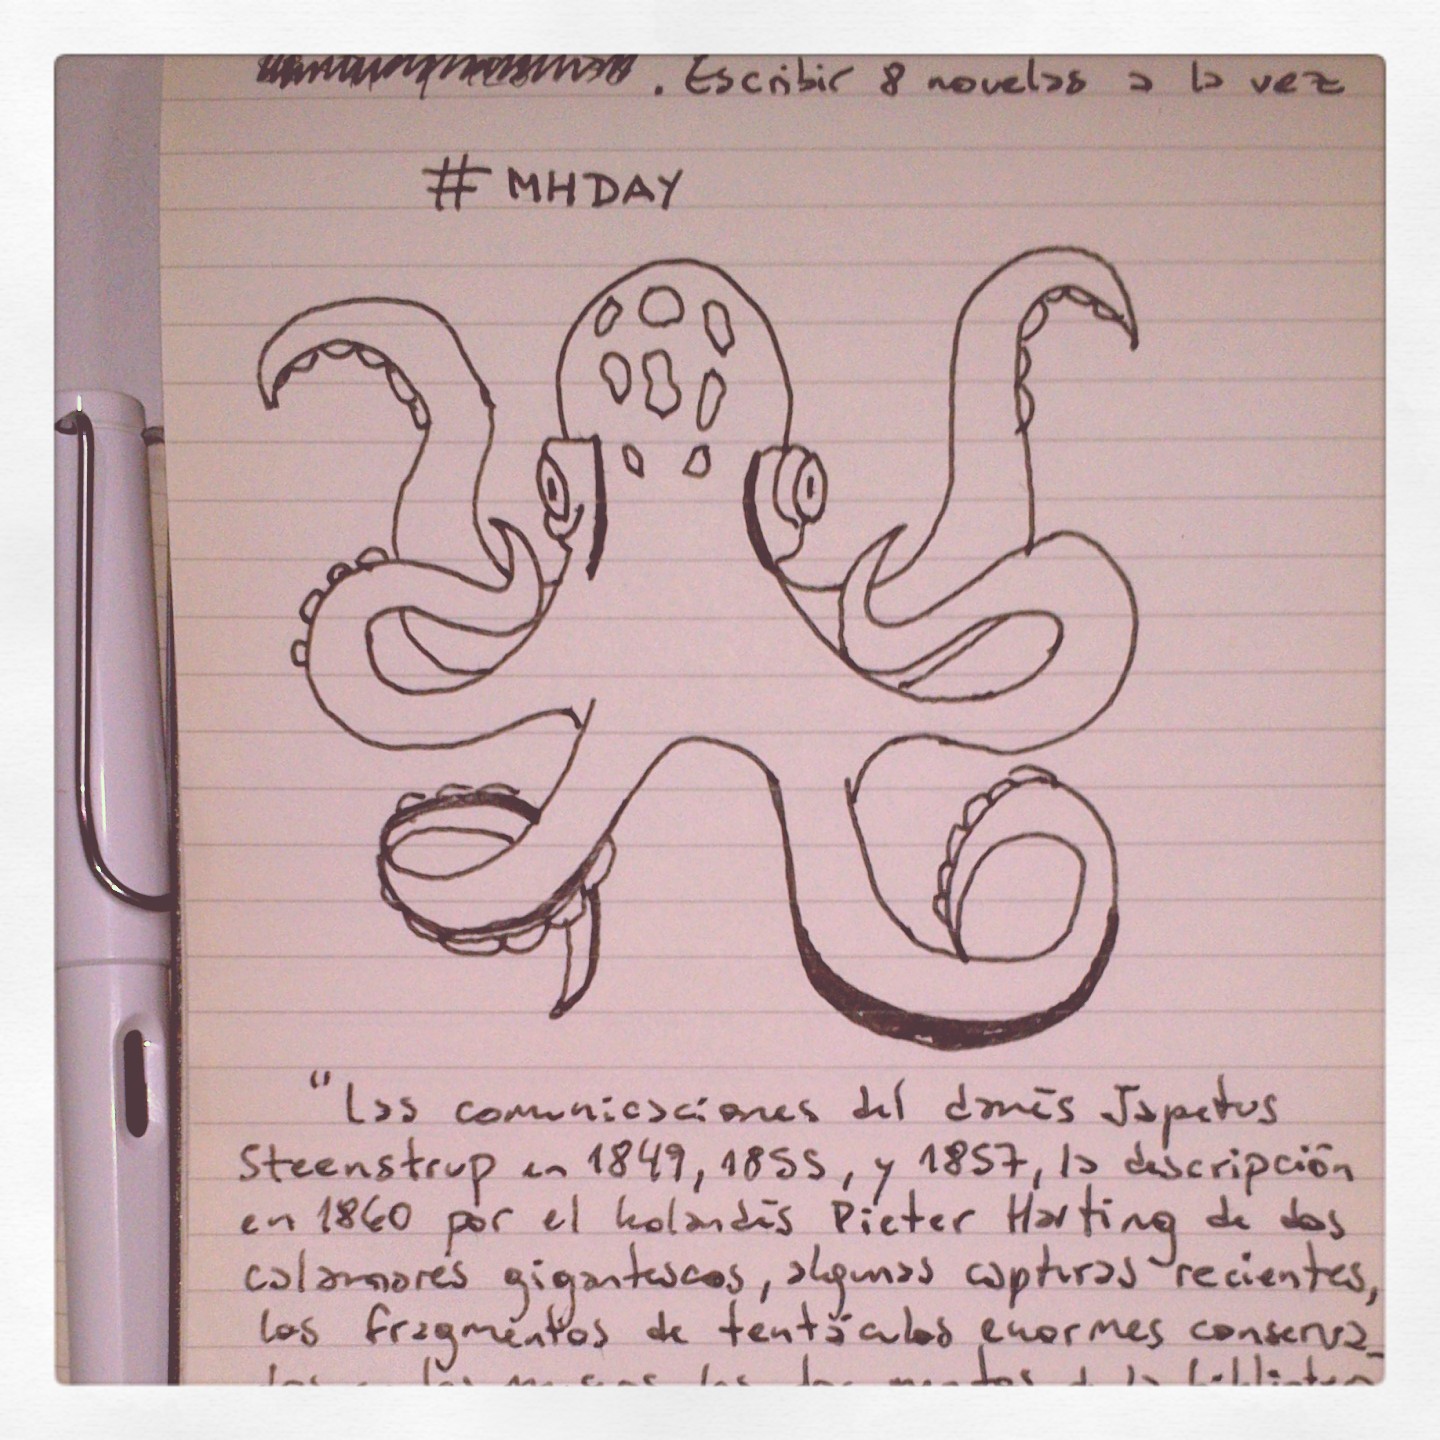 . Escribir 8 novelas a la vez
# MHDAY
"Las comunicaciones del danés Japetus
Steenstrup en 1849, 1855, y 1857, la descripción
en 1860 por el holandés Pieter Harting de dos
calamares gigantescos, algunas capturas recientes,
los fragmentos de tentáculos enormes conserva_